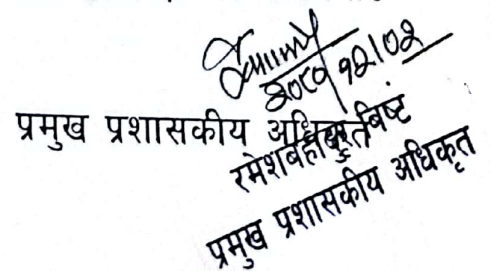 २०८०/१२/०२
प्रमुख प्रशासकीय अधिकृत
रमेशबहादुर बिष्ट
प्रमुख प्रशासकीय अधिकृत